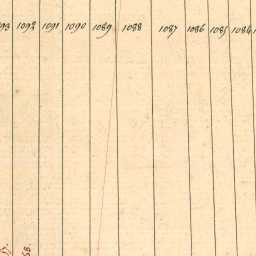 1092 1091 1090 1089 1088 1087 1086 1085 1084